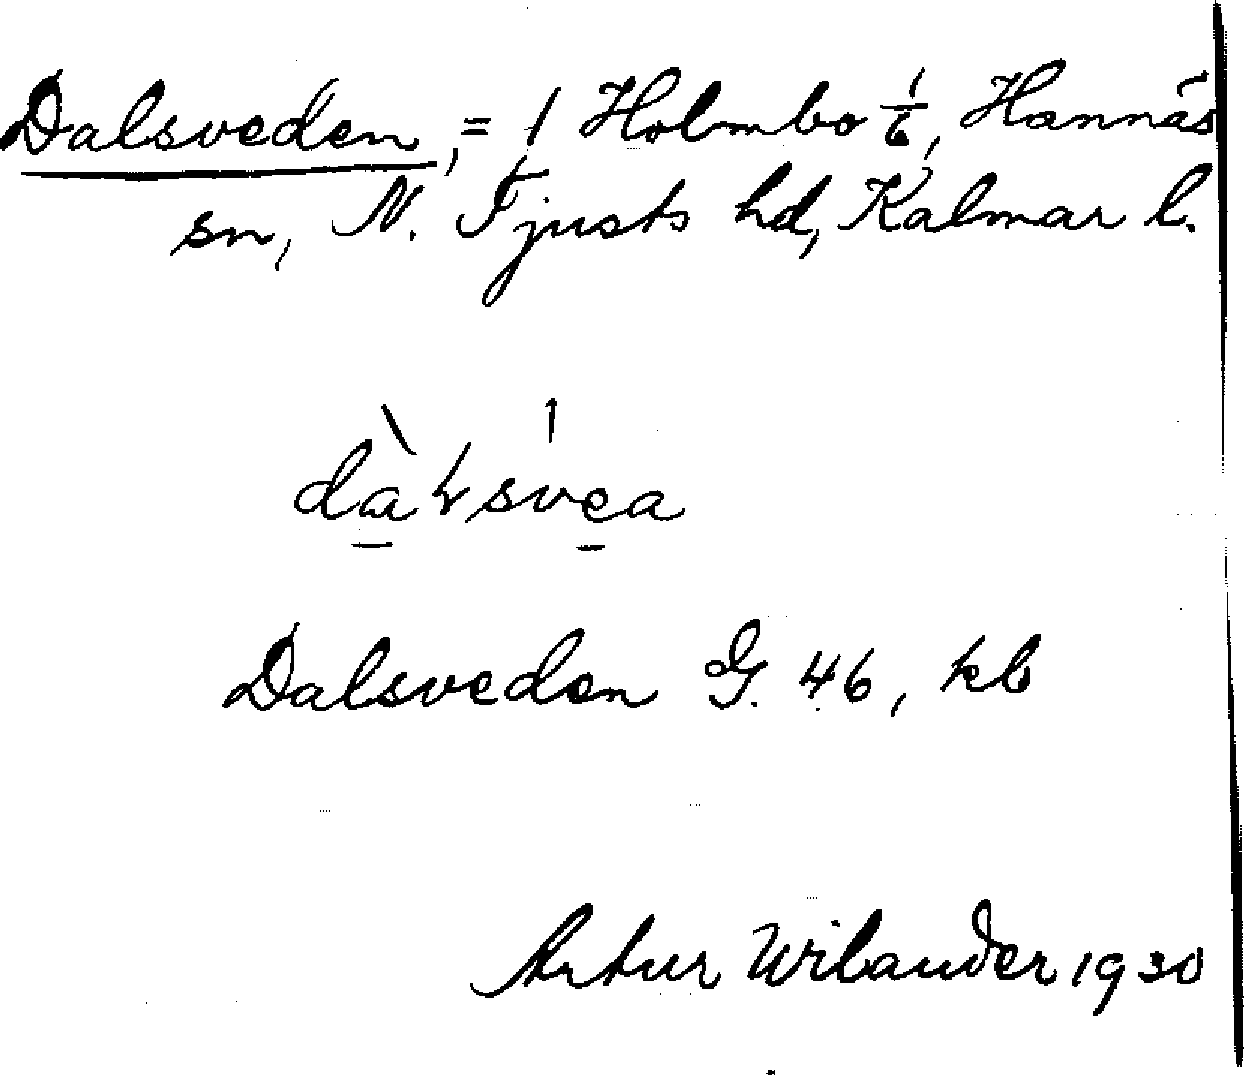 Dalsveden, = 1 Holmbo 1/6, Hannäs
sn, N. Tjusts hd, Kalmar l.
Dalsveden G. 46, kb
Artur Wilander 1930